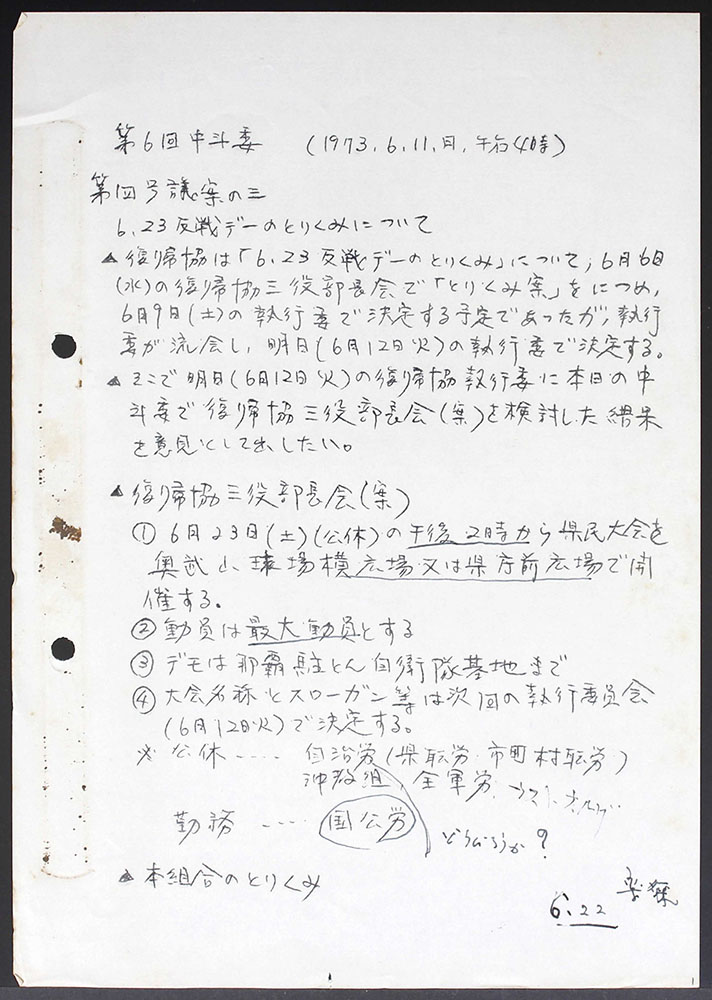 第6回中斗委 (1973.6.11.月.午后4時)
第四号議案の三
6.23反戦デーのとりくみについて
▲ 復帰協は「6.23反戦デーのとりくみ」について,6月6日
(水)の復帰協三役部長会で「とりくみ案」をにつめ,
6月9日(土)の執行委で決定する予定であったが,執行
委が流会し,明日(6月12日火)の執行委で決定する。
▲ そこで明日(6月12日火)の復帰協執行委に本日の中
斗委で復帰協三役部長会(案)を検討した結果
を意見として出したい。
▲ 復帰協三役部長会(案)
① 6月23日(土)(公休)の午後2時から県民大会を
奥武山球場横広場又は県庁前広場で開
催する。
② 動員は最大動員とする
③ デモは那覇駐とん自衛隊基地まで
④ 大会名称とスローガン等は次回の執行委員会
(6月12日火)で決定する。
※ 公休‥‥ 自治労(県職労 市町村職労)
沖教組,全軍労.
勤務 ‥‥ 国公労 どうなろうか?
▲ 本組合のとりくみ
6.22